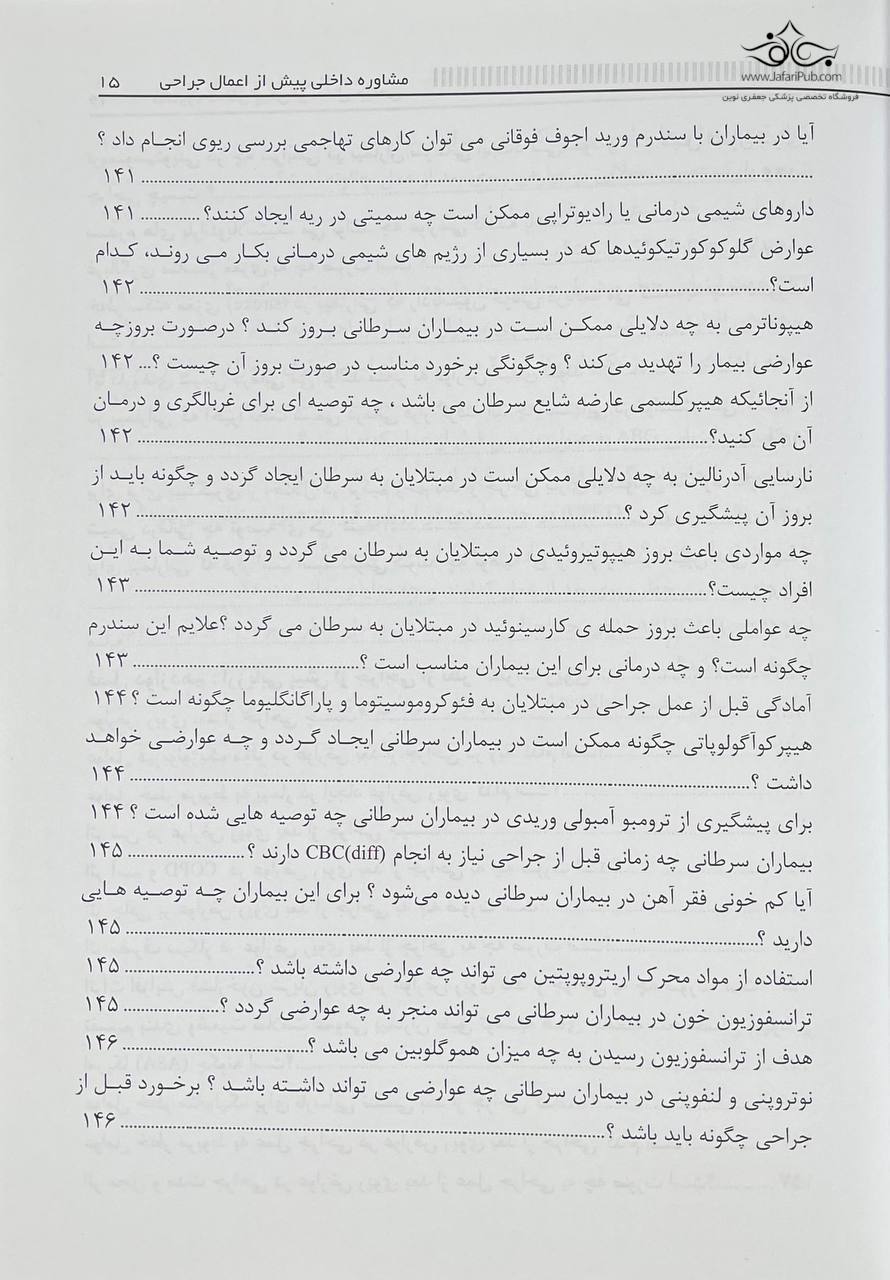 www.JafariPub.com
فروشگاه تخصصی پزشکی جعفری نوین
مشاوره داخلی پیش از اعمال جراحی ۱۵
آیا در بیماران با سندرم ورید اجوف فوقانی می توان کارهای تهاجمی بررسی ریوی انجام داد ؟
۱۴۱
داروهای شیمی درمانی یا رادیوتراپی ممکن است چه سمیتی در ریه ایجاد کنند؟ ............. ۱۴۱
عوارض گلوکوکورتیکوئیدها که در بسیاری از رژیم های شیمی درمانی بکار می روند، کدام
است؟ ............. ۱۴۲
هیپوناترمی به چه دلایلی ممکن است در بیماران سرطانی بروز کند ؟ درصورت بروزچه
عوارضی بیمار را تهدید می‌کند ؟ وچگونگی برخورد مناسب در صورت بروز آن چیست ؟... ۱۴۲
از آنجائیکه هیپرکلسمی عارضه شایع سرطان می باشد ، چه توصیه ای برای غربالگری و درمان
آن می کنید؟ ............. ۱۴۲
نارسایی آدرنالین به چه دلایلی ممکن است در مبتلایان به سرطان ایجاد گردد و چگونه باید از
بروز آن پیشگیری کرد ؟ ............. ۱۴۲
چه مواردی باعث بروز هیپوتیروئیدی در مبتلایان به سرطان می گردد و توصیه شما به این
افراد چیست؟ ............. ۱۴۳
چه عواملی باعث بروز حمله ی کارسینوئید در مبتلایان به سرطان می گردد ؟علایم این سندرم
چگونه است؟ و چه درمانی برای این بیماران مناسب است ؟ ............. ۱۴۳
آمادگی قبل از عمل جراحی در مبتلایان به فئوکروموسیتوما و پاراگانگلیوما چگونه است ؟ ۱۴۴
هیپرکوآگولوپاتی چگونه ممکن است در بیماران سرطانی ایجاد گردد و چه عوارضی خواهد
داشت ؟ ............. ۱۴۴
برای پیشگیری از ترومبو آمبولی وریدی در بیماران سرطانی چه توصیه هایی شده است ؟ ۱۴۴
بیماران سرطانی چه زمانی قبل از جراحی نیاز به انجام CBC(diff) دارند ؟ ............. ۱۴۵
آیا کم خونی فقر آهن در بیماران سرطانی دیده می‌شود ؟ برای این بیماران چه توصیه هایی
دارید ؟ ............. ۱۴۵
استفاده از مواد محرک اریتروپویتین می تواند چه عوارضی داشته باشد ؟ ............. ۱۴۵
ترانسفوزیون خون در بیماران سرطانی می تواند منجر به چه عوارضی گردد ؟ ............. ۱۴۵
هدف از ترانسفوزیون رسیدن به چه میزان هموگلوبین می باشد ؟ ............. ۱۴۶
نوتروپنی و لنفوپنی در بیماران سرطانی چه عوارضی می تواند داشته باشد ؟ برخورد قبل از
جراحی چگونه باید باشد ؟ ............. ۱۴۶